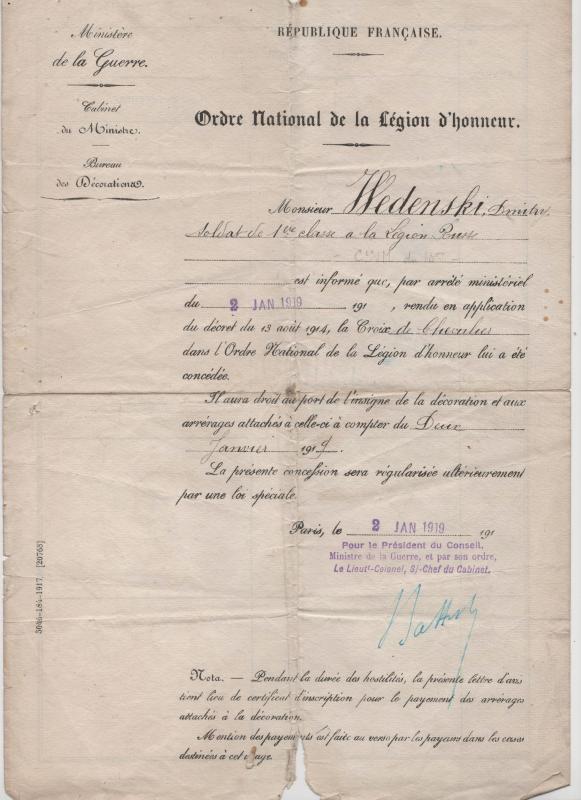 Ministère
de la Guerre.
Cabinet
du Ministre.
Bureau
des Décorations.
RÉPUBLIQUE FRANÇAISE.
Ordre National de la Légion d'honneur.
Monsieur Wedenski, Dmitri
Soldat de 1ère classe a la Légion Russe
est informé que, par arrêté ministériel
du 2 JAN 1919 191 , rendu en application
du décret du 13 août 1914, la Croix de Chevalier
dans l'Ordre National de la Légion d'honneur lui a été
concédée.
Il aura droit au port de l'insigne de la décoration et aux
arrérages attachés à celle-ci à compter du Deux
Janvier 1919.
La présente concession sera régularisée ultérieurement
par une loi spéciale.
Paris, le 2 JAN 1919 191
Pour le Président du Conseil,
Ministre de la Guerre, et par son ordre,
Le Lieutt-Colonel, S/-Chef du Cabinet.
Nota. — Pendant la durée des hostilités, la présente lettre d'avis
tient lieu de certificat d'inscription pour le payement des arrérages
attachés à la décoration.
Mention des payements est faite au verso par les payeurs dans les cases
destinées à cet usage.
5046-184-1917. [20765]